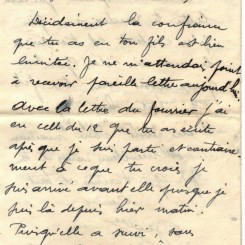 Décidément la confiance
que tu as en ton fils est bien
limitée. Je ne m'attendais point
à recevoir pareille lettre aujourd'hui
Avec la lettre du fourrier j'ai
eu celle du 12 que tu as écrite
après que je sois parti et contraire
ment à ce que tu crois je
suis arrivé avant elle puisque je
suis là depuis hier matin.
Puisqu'elle a suivi, sans